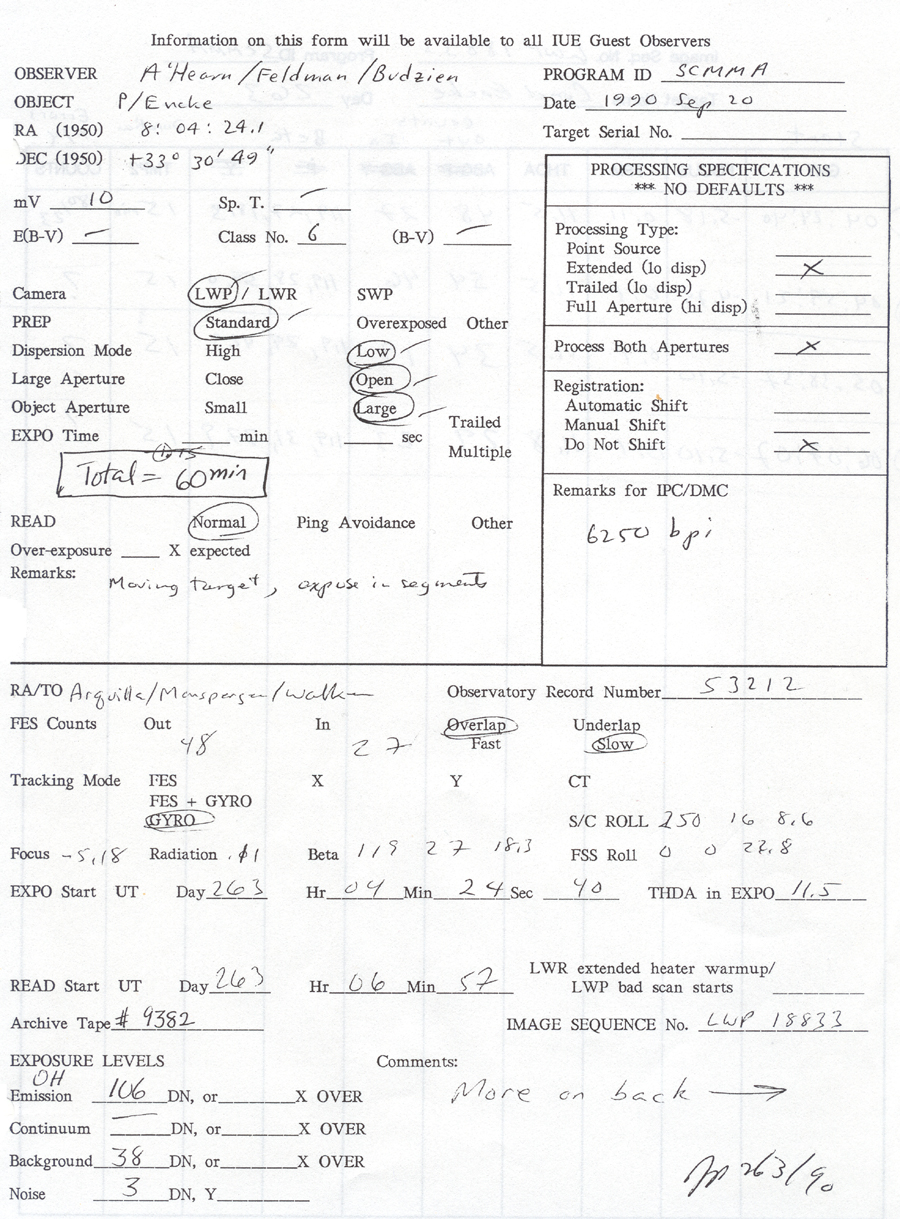 Information on this form will be available to all IUE Guest Observers
OBSERVER A'Hearn/Feldman/Budzien
PROGRAM ID SCMMA
OBJECT P/Encke
Date 1990 Sep 20
RA (1950) 8: 04: 24.1
Target Serial No.
DEC (1950) +33° 30' 49"
PROCESSING SPECIFICATIONS
*** NO DEFAULTS ***
mV 10 Sp. T. —
E(B-V) — Class No. 6 (B-V) —
Processing Type:
Point Source
Extended (lo disp) X
Trailed (lo disp)
Full Aperture (hi disp)
Camera LWP / LWR SWP
PREP Standard Overexposed Other
Dispersion Mode High Low
Process Both Apertures X
Large Aperture Close Open
Registration:
Automatic Shift
Manual Shift
Do Not Shift X
Object Aperture Small Large
Trailed
EXPO Time min sec
Multiple
Total = 60 min
Remarks for IPC/DMC
6250 bpi
READ Normal Ping Avoidance Other
Over-exposure X expected
Remarks: Moving target, expose in segments
RA/TO Arquilla/
Observatory Record Number 53212
FES Counts Out In Overlap Underlap
48 27 Fast Slow
Tracking Mode FES X Y CT
FES + GYRO
GYRO
S/C ROLL 250 16 8.6
Focus -5.18 Radiation .01 Beta 119 27 18.3 FSS Roll 0 0 22.8
EXPO Start UT Day 263 Hr 04 Min 24 Sec 40 THDA in EXPO 11.5
LWR extended heater warmup/
READ Start UT Day 263 Hr 06 Min 57 LWP bad scan starts
Archive Tape # 9382 IMAGE SEQUENCE No. LWP 18833
EXPOSURE LEVELS Comments:
OH
Emission 106 DN, or X OVER
More on back →
Continuum — DN, or X OVER
Background 38 DN, or X OVER
Noise 3 DN, Y
263/90